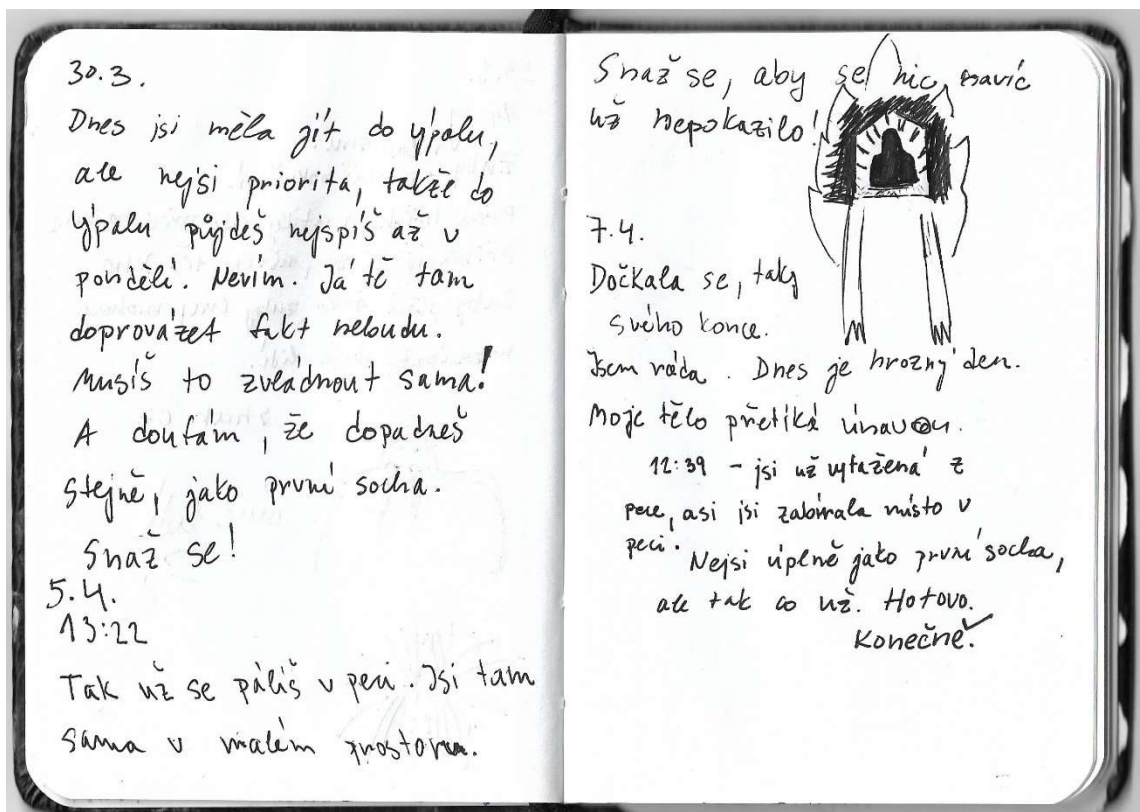 30.3.
Dnes jsi měla jít do výpalu,
ale nejsi priorita, takže do
výpalu půjdeš nejspíš až v
pondělí. Nevím. Já tě tam
doprovázet fakt nebudu.
Musíš to zvládnout sama!
A doufám, že dopadneš
stejně, jako první socha.
Snaž se!
5.4.
13:22
Tak už se pálíš v peci. Jsi tam
sama v malém prostoru.
Snaž se, aby se nic navíc
už nepokazilo!
7.4.
Dočkala se, taky
svého konce.
Jsem ráda. Dnes je hrozný den.
Moje tělo přetíká únavou.
12:39 – jsi už vytažená z
pece, asi jsi zabírala místo v
peci.
Nejsi úplně jako první socha,
ale tak co už. Hotovo.
Konečně.